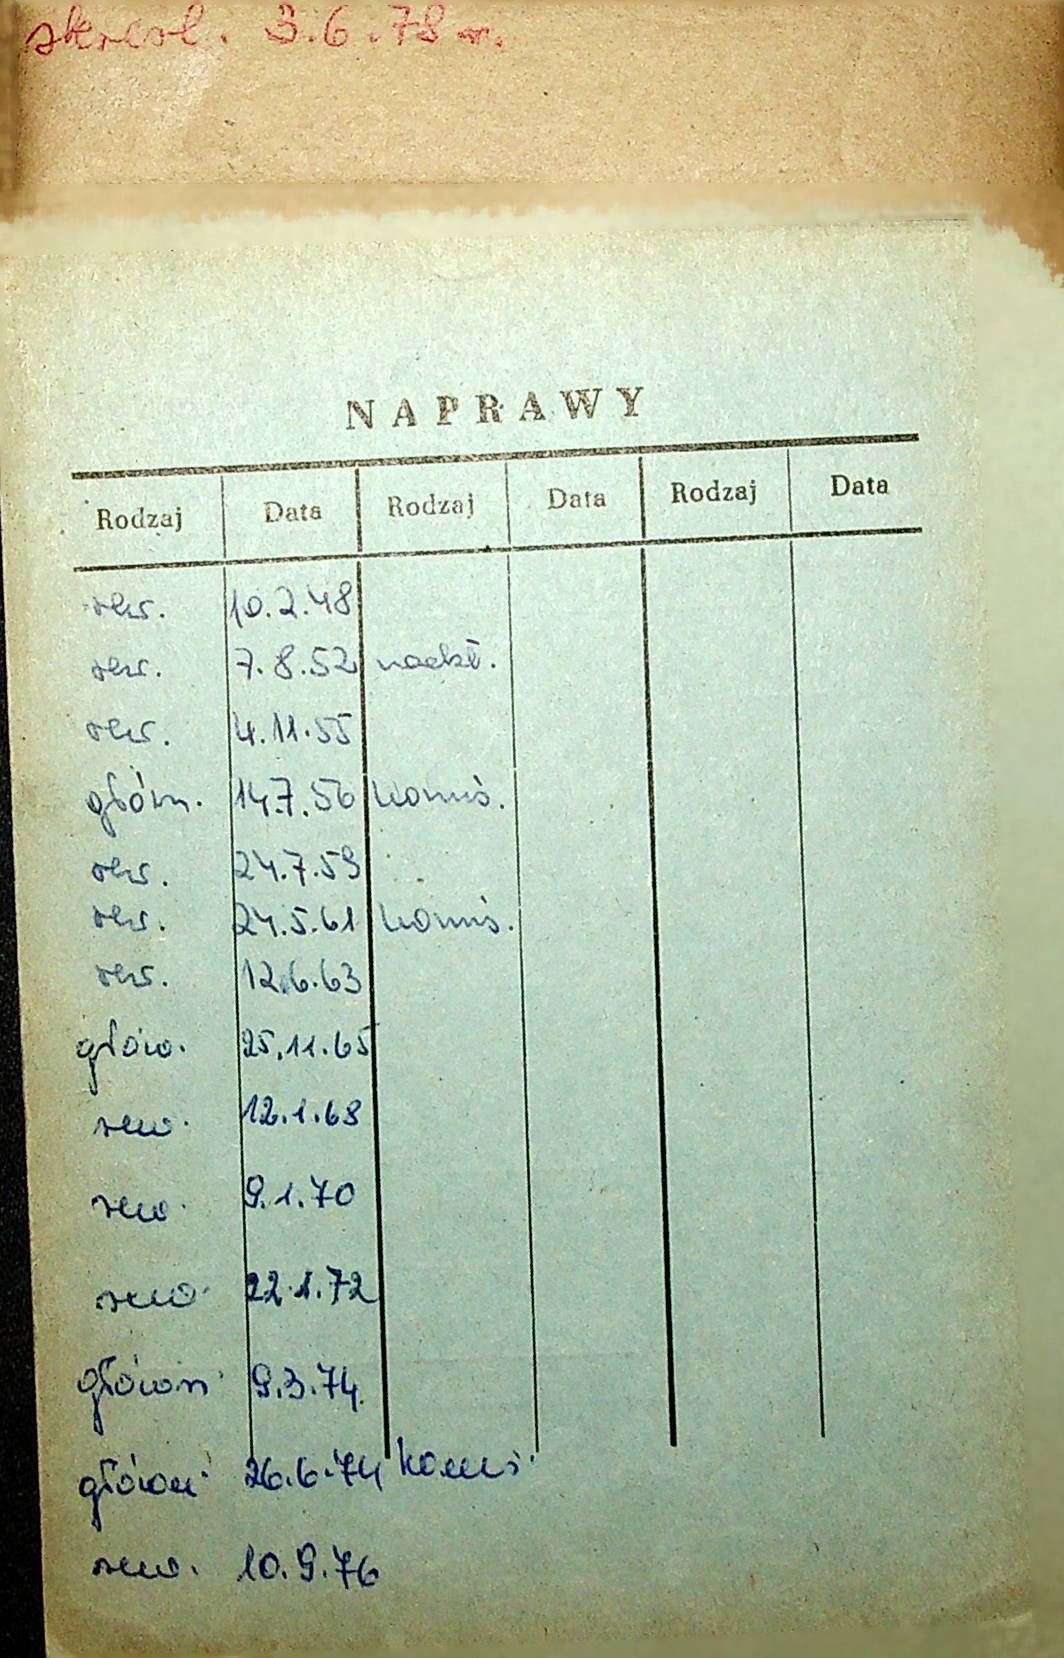 skreśl. 3.6.78 r.
NAPRAWY
Rodzaj Data Rodzaj Data Rodzaj Data
10.2.48
7.8.52
4.11.55
główn. 14.7.56 komis.
24.7.59
24.5.61 komis.
12.6.63
głów. 25.11.65
rew. 12.1.68
rew. 9.1.70
rew. 22.1.72
główn. 9.3.74.
główn. 26.6.74 komis.
rew. 10.9.76